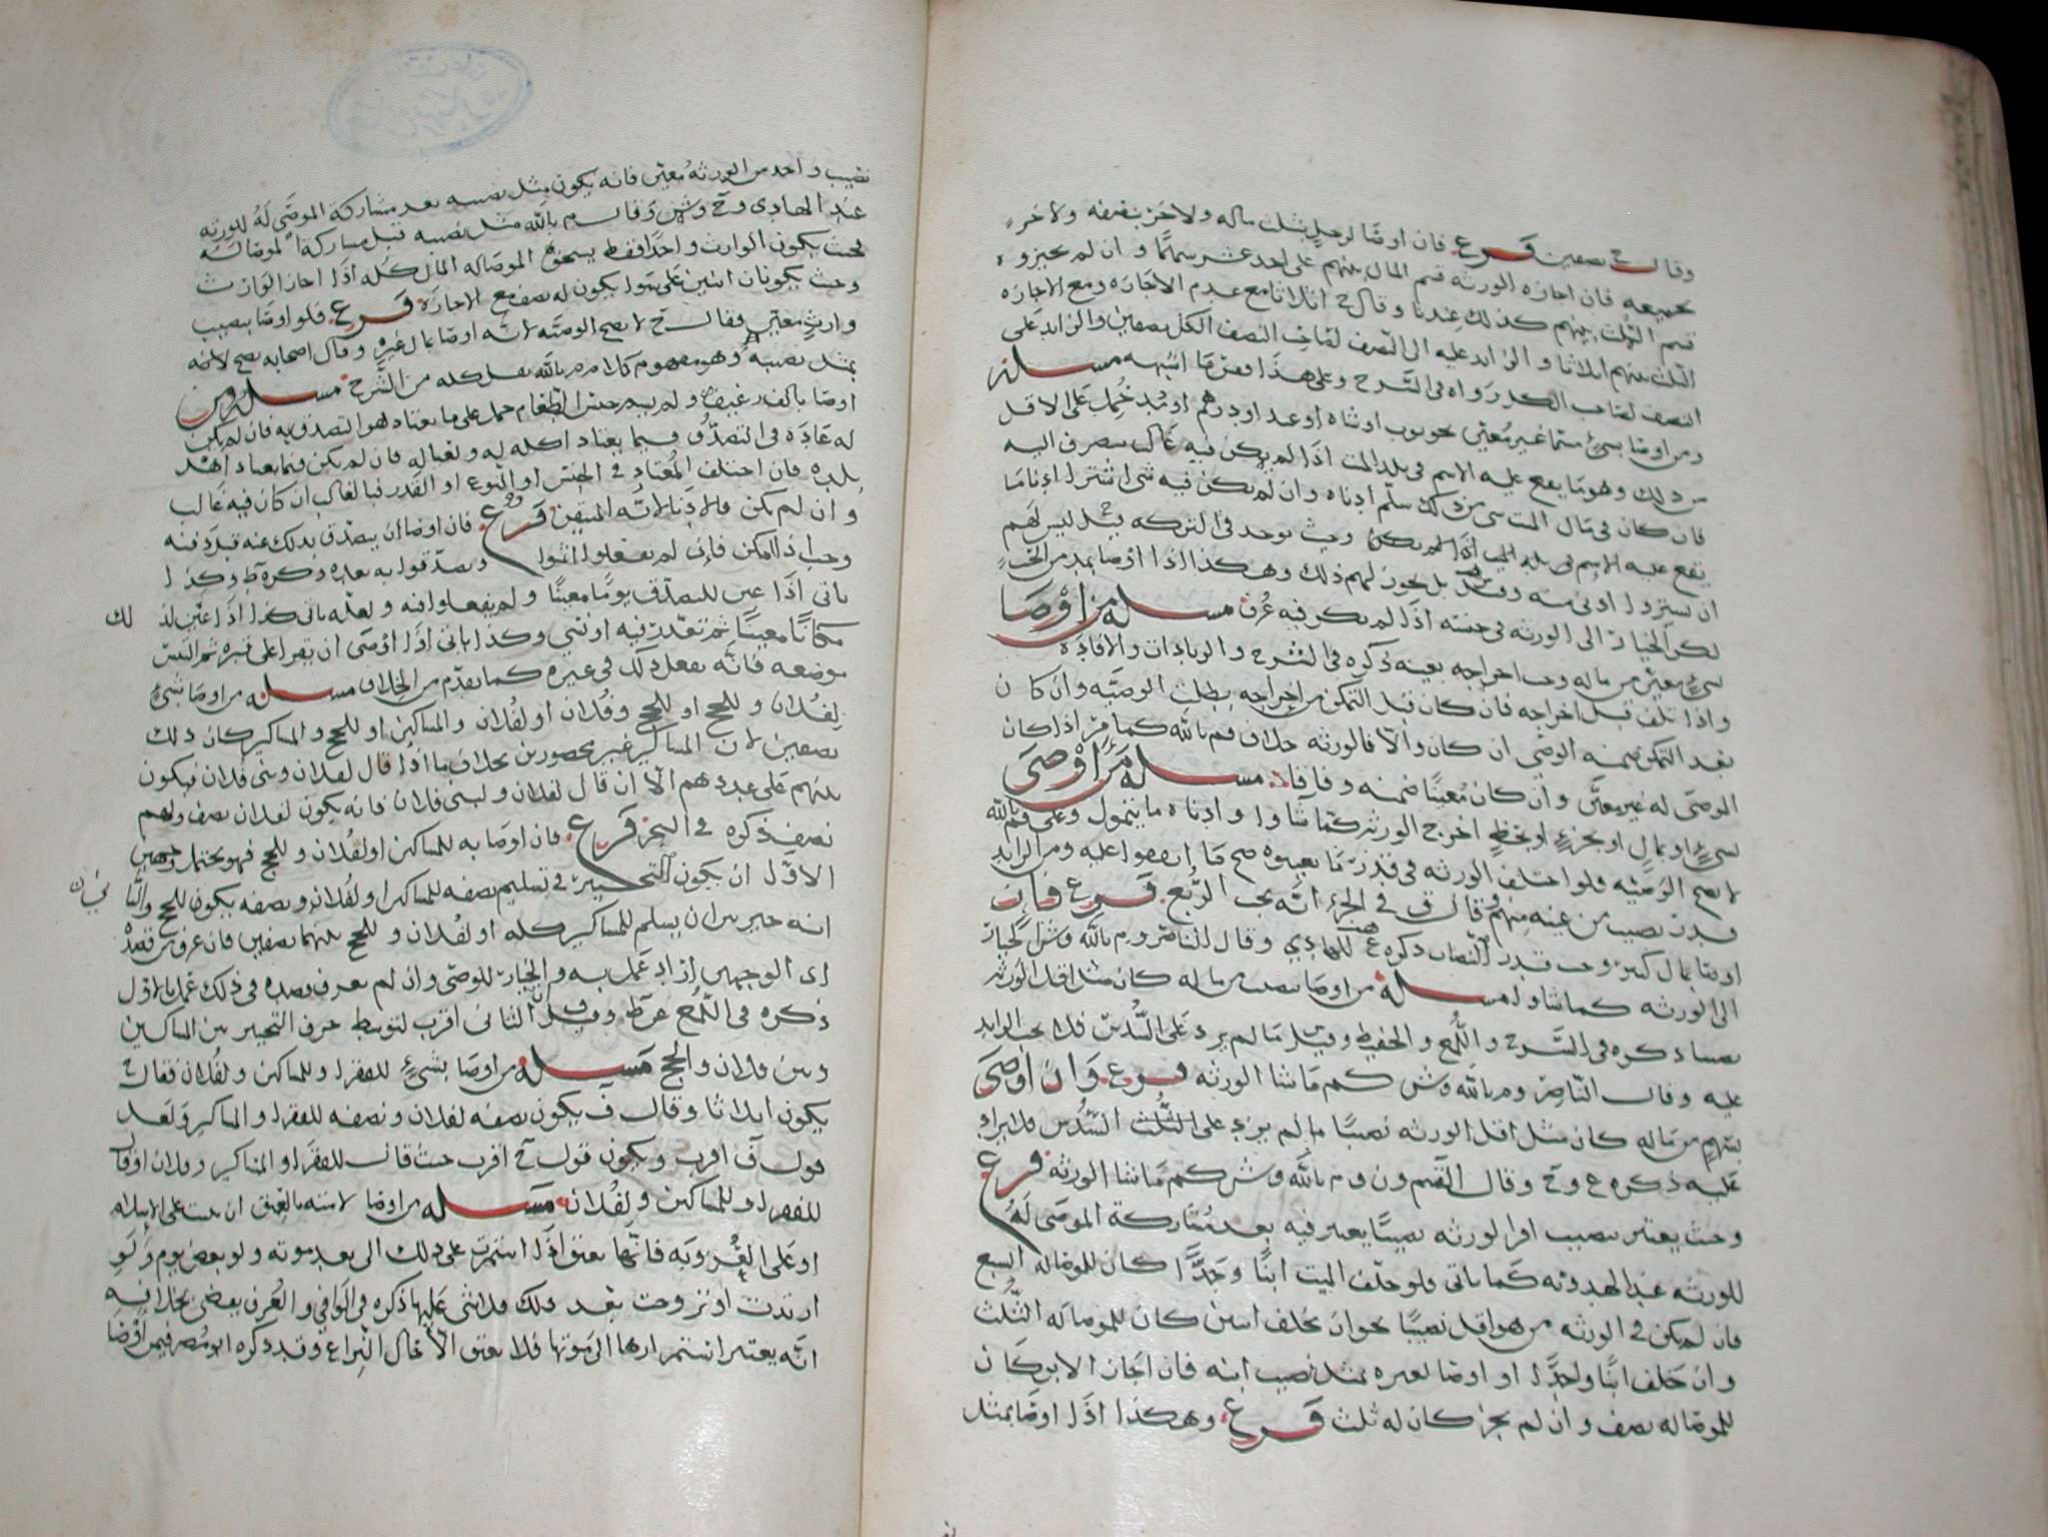 وقال ح نصفين فرع فان اوصا لرجل بثلث ماله ولاخر بنصفه ولاخر
بجميعه فان اجازه الورثه قسم المال بينهم على احد عشر سهمًا وان لم يجيزوه
قسم الثلث بينهم كذلك عندنا وقال ح اثلاثا مع عدم الاجازه ومع الاجازه
الثلث بينهم اثلاثا والزايد عليه الى النصف لصاحب النصف والكل نصفين والزايد على
النصف لصاحب الكل رواه في الشرح وعلى هذا فقس ما اشبهه مسئله
ومن اوصا بشيء سمّا غير معيّن نحو ثوب او شاه او عبد او درهم او مُد حُمل على الاقل
من ذلك وهو ما يقع عليه الاسم في بلد الميت اذا لم يكن فيه غالب ينصرف اليه
فان كان في مال الميت شي من ذلك سلّم ادناه وان لم يكن فيه شي اشترا ادنا ما
يقع عليه الاسم في بلد الميت اذا لم يكن وحيث يوجد في التركه فليس لهم
ان يشترو ادنى منه وقيل بل يجوز لهم ذلك وهكذا اذا اوصا بمد من الحب
لكن الخيار الى الورثه في جنسه اذا لم يكن فيه عُرف مسئله من اوصا
بشيء معيّن من ماله وجب اخراجه بعينه ذكره في الشرح والزيادات والافاده
واذا تلف قبل اخراجه فان كان قبل التمكن من اخراجه بطلت الوصيّه وان كان
بعد التمكن ضمنه الوصي ان كان والّا فالورثه خلاف م بالله كما مرّ اذا كان
الموصى له غير معيّن وان كان مُعينًا ضمنه وفاقا مسئله من اوصى
بشيء او بمالٍ او بجزءٍ او بحظٍ اخرج الورثه كما شاوا وادناه ما يتمول وعلى قول م بالله
لا تصح الوصيّه فلو اختلف الورثه في قدر ما يعينوه صح ما اتفقوا عليه ومن الزايد
قدر نصيب من عينه منهم وقال ق في الجزء انّه يجب الرُبع فرع فان
اوصا بمال كثير وجب قدر النصاب ذكره ع للهادي وقال الناصر وم بالله وش الخيار
الى الورثه كما شاوا مسئله من اوصا بنصيب من ماله كان مثل اقل الورثه
نصيبا ذكره في الشرح واللمع والحفيظ وقيل ما لم يزد على السُّدس فلا يجب الزايد
عليه وقال النّاصر وم بالله وش كم ما شا الورثه فرع وان اوصى
بسهمٍ من ماله كان مثل اقل الورثه نصيبًا ما لم يزد على السُّدس فلا يزاد
عليه ذكره ع وح وقال القسم ون وم بالله وش كم ما شا الورثه فرع
وحيث يعتبر نصيب اقل الورثه نصيبًا يعتبر فيه بعد مُشاركة الموصى له
للورثه عند الهدويه كما ياتى فلو خلّف الميت ابنًا وجدًّا كان للموصا له السبع
فان لم يكن في الورثه من هو اقل نصيبًا نحو ان يخلف ابنين كان للموصا له الثلث
وان خلف ابنًا واحدًا او اوصا لغيره بمثل نصيب ابنه فان اجاز الابن كان
للموصا له نصف وان لم يجز كان له ثلث فرع وهكذا اذا اوصا بمثل
نصيب واحد من الورثه مُعيّن فانه يكون مثل نصيبه بعد مشاركة الموصى له للورثه
عند الهادي وح وش وقال م بالله مثل نصيبه قبل مشاركة الموصا له
فحيث يكون الوارث واحدًا فقط يستحق الموصا له المال كله اذا اجاز الوارث
وحيث يكونان اثنين على سوا يكون له نصف مع الاجازه فرع فلو اوصا بنصيب
وارثٍ معيّن فقال ح لا تصح الوصيّه لانّه اوصا بمال غيره وقال اصحابه يصح لانه
بمثل نصيبه وهو مفهوم كلام م بالله نقل كله من الشرح مسئله ومن
اوصا بالف رغيف ولم يبيّن جنس الطعام حمل على ما يعتاد هو التصدق به فان لم يكن
له عادة في التصدّق فيما يعتاد اكله له ولعياله فان لم يكن فيما يعتاد اهل
بلده فان اختلف المُعتاد في الجنس او النّوع او القدر فبالغالب ان كان فيه غالب
وان لم يكن فالادنا لانّه المتيقن فرع فان اوصا ان يتصدّق بذلك عند قبره
وجب اذا امكن فان لم يفعلوا اثموا وتصدّقوا به بعده ذكره ط وكذا
ياتي اذا عين للتصدّق يومًا معينًا ولم يفعلوا فيه ولعله ياتي كذا اذا عيّن لذلك
مكانًا معينًا ثم تعذّر فيه او نسي وكذا ياتي اذا اوصى ان يقرا على قبره ثم التبس
موضعه فانّه يفعل ذلك في غيره كما تقدّم من الخلاف مسئله من اوصا بشيءٍ
لفلان وللحج او للحج وفلان او لفلان والمساكين او للحج والمساكين كان ذلك
نصفين لان المساكين غير محصورين بخلاف ما اذا قال لفلان وبني فلان فيكون
بينهم على عددهم الّا ان قال لفلان ولبني فلان فانه يكون لفلان نصف ولهم
نصف ذكره في البحر فرع فان اوصا به للمساكين او لفلان وللحج فهو يحتمل وجهين
الاوّل ان يكون التخيير في تسليم نصفه للمساكين او لفلان ونصفه يكون للحج والثاني
انه خير بين ان يسلم للمساكين كله او لفلان وللحج بينهما نصفين فان عرف من قصده
اى الوجهين اراد عمل به والخيار للوصّى وان لم يعرف قصده في ذلك عمل بالاول
ذكره في اللمع عن ط وقيل ل الثاني اقرب لتوسط حرف التخيير بين المساكين
وبين فلان والحج مسئله من اوصا بشيءٍ للفقرا وللمساكين ولفلان فقال ح
يكون اثلاثا وقال ف يكون نصفه لفلان ونصفه للفقرا والمساكين ولعل
قول ف اقرب ويكون قول ح اقرب حيث قال للفقرا والمساكين وفلان او قال
للفقرا وللمساكين ولفلان مسئله من اوصا لامته بالعتق ان ثبتت على الاسلام
او على العُزوبة فانّها تعتق اذا استمرت على ذلك الى بعد موته ولو بعض يوم ولو
ارتدت او تزوجت بعد ذلك فلا شي عليها ذكره في الوافي والعُرف يقضي بخلافه
انّه يعتبر استمرارها الى موتها فلا تعتق الا حال النزاع وقد ذكره ابو مضر فيمن اوصا